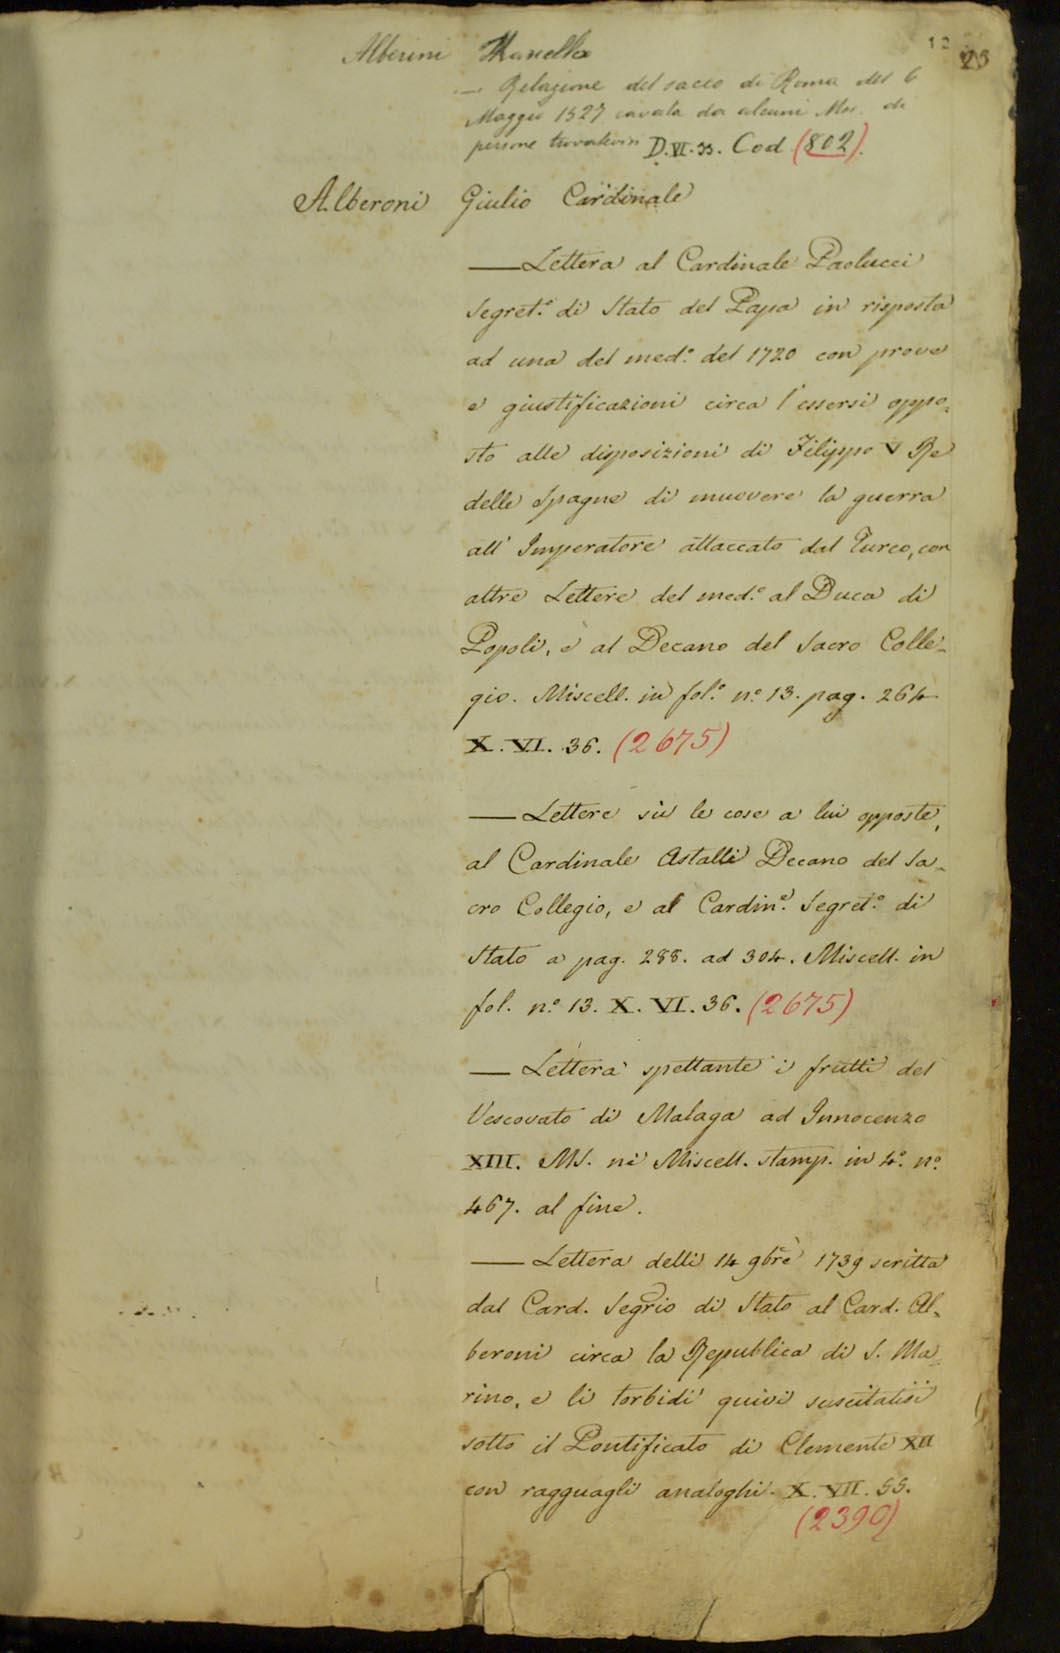 12 23
Alberini Marcello
— Relazione del sacco di Roma del 6
Maggio 1527 cavata da alcuni Mss. di
persone trovatevisi D.VI.33. Cod (802).
Alberoni Giulio Cardinale
— Lettera al Cardinale Paolucci
Segret.º di Stato del Papa in risposta
ad una del med.º del 1720 con prove
e giustificazioni circa l'essersi oppo-
sto alle disposizioni di Filippo V Re
delle Spagne di muovere la guerra
all' Imperatore attaccato dal Turco, con
altre Lettere del med.º al Duca di
Popoli, e al Decano del Sacro Colle-
gio. Miscell. in fol.º n.º 13. pag. 264
X. VI. 36. (2675)
— Lettere sù le cose a lui opposte,
al Cardinale Astalli Decano del Sa-
cro Collegio, e al Cardin.e Segret.º di
Stato a pag. 288. ad 304. Miscell. in
fol. n.º 13. X. VI. 36. (2675)
— Lettera spettante i frutti del
Vescovato di Malaga ad Innocenzo
XIII. MS. nè Miscell. stamp. in 4.º n.º
467. al fine.
— Lettera delli 14 9bre 1739 scritta
dal Card. Segrio di Stato al Card. Al-
beroni circa la Republica di S. Ma-
rino, e li torbidi quivi suscitatisi
sotto il Pontificato di Clemente XII
con ragguagli analoghi. X. VII. 55.
(2390)